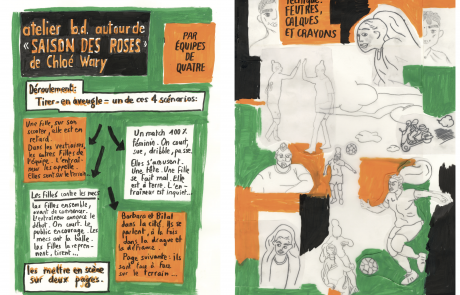 atelier b.d. autour de
"SAISON DES ROSES"
de Chloé Wary
PAR
ÉQUIPES
DE
QUATRE
Déroulement:
Tirer-en aveugle = un de ces 4 scénarios:
Une fille, sur son
scooter, elle est en
retard.
Dans les vestiaires,
les autres filles de
l'équipe. L'entraî-
neur les appelle.
Elles sont sur le terrain.
Un match 100%
féminin. On court,
sue, dribble, passe.
Elles s'amusent.
Une fête. Une fille
se fait mal. Elle
est à terre. L'en-
traîneur est inquiet...
Les filles contre les mecs
Les filles ensemble,
avant de commencer.
L'entraîneur annonce le
début. On court. Le
public encourage. Les
mecs ont la balle.
Les filles la repren-
nent, tirent...
Barbara et Bilal
dans la cité. Ils se
parlent, à la fois
dans la drague et
la défiance.
Page suivante: ils
sont tous à fois
sur le terrain...
Les mettre en scène
sur deux pages.
Technique:
FEUTRES,
CALQUES
ET
CRAYONS